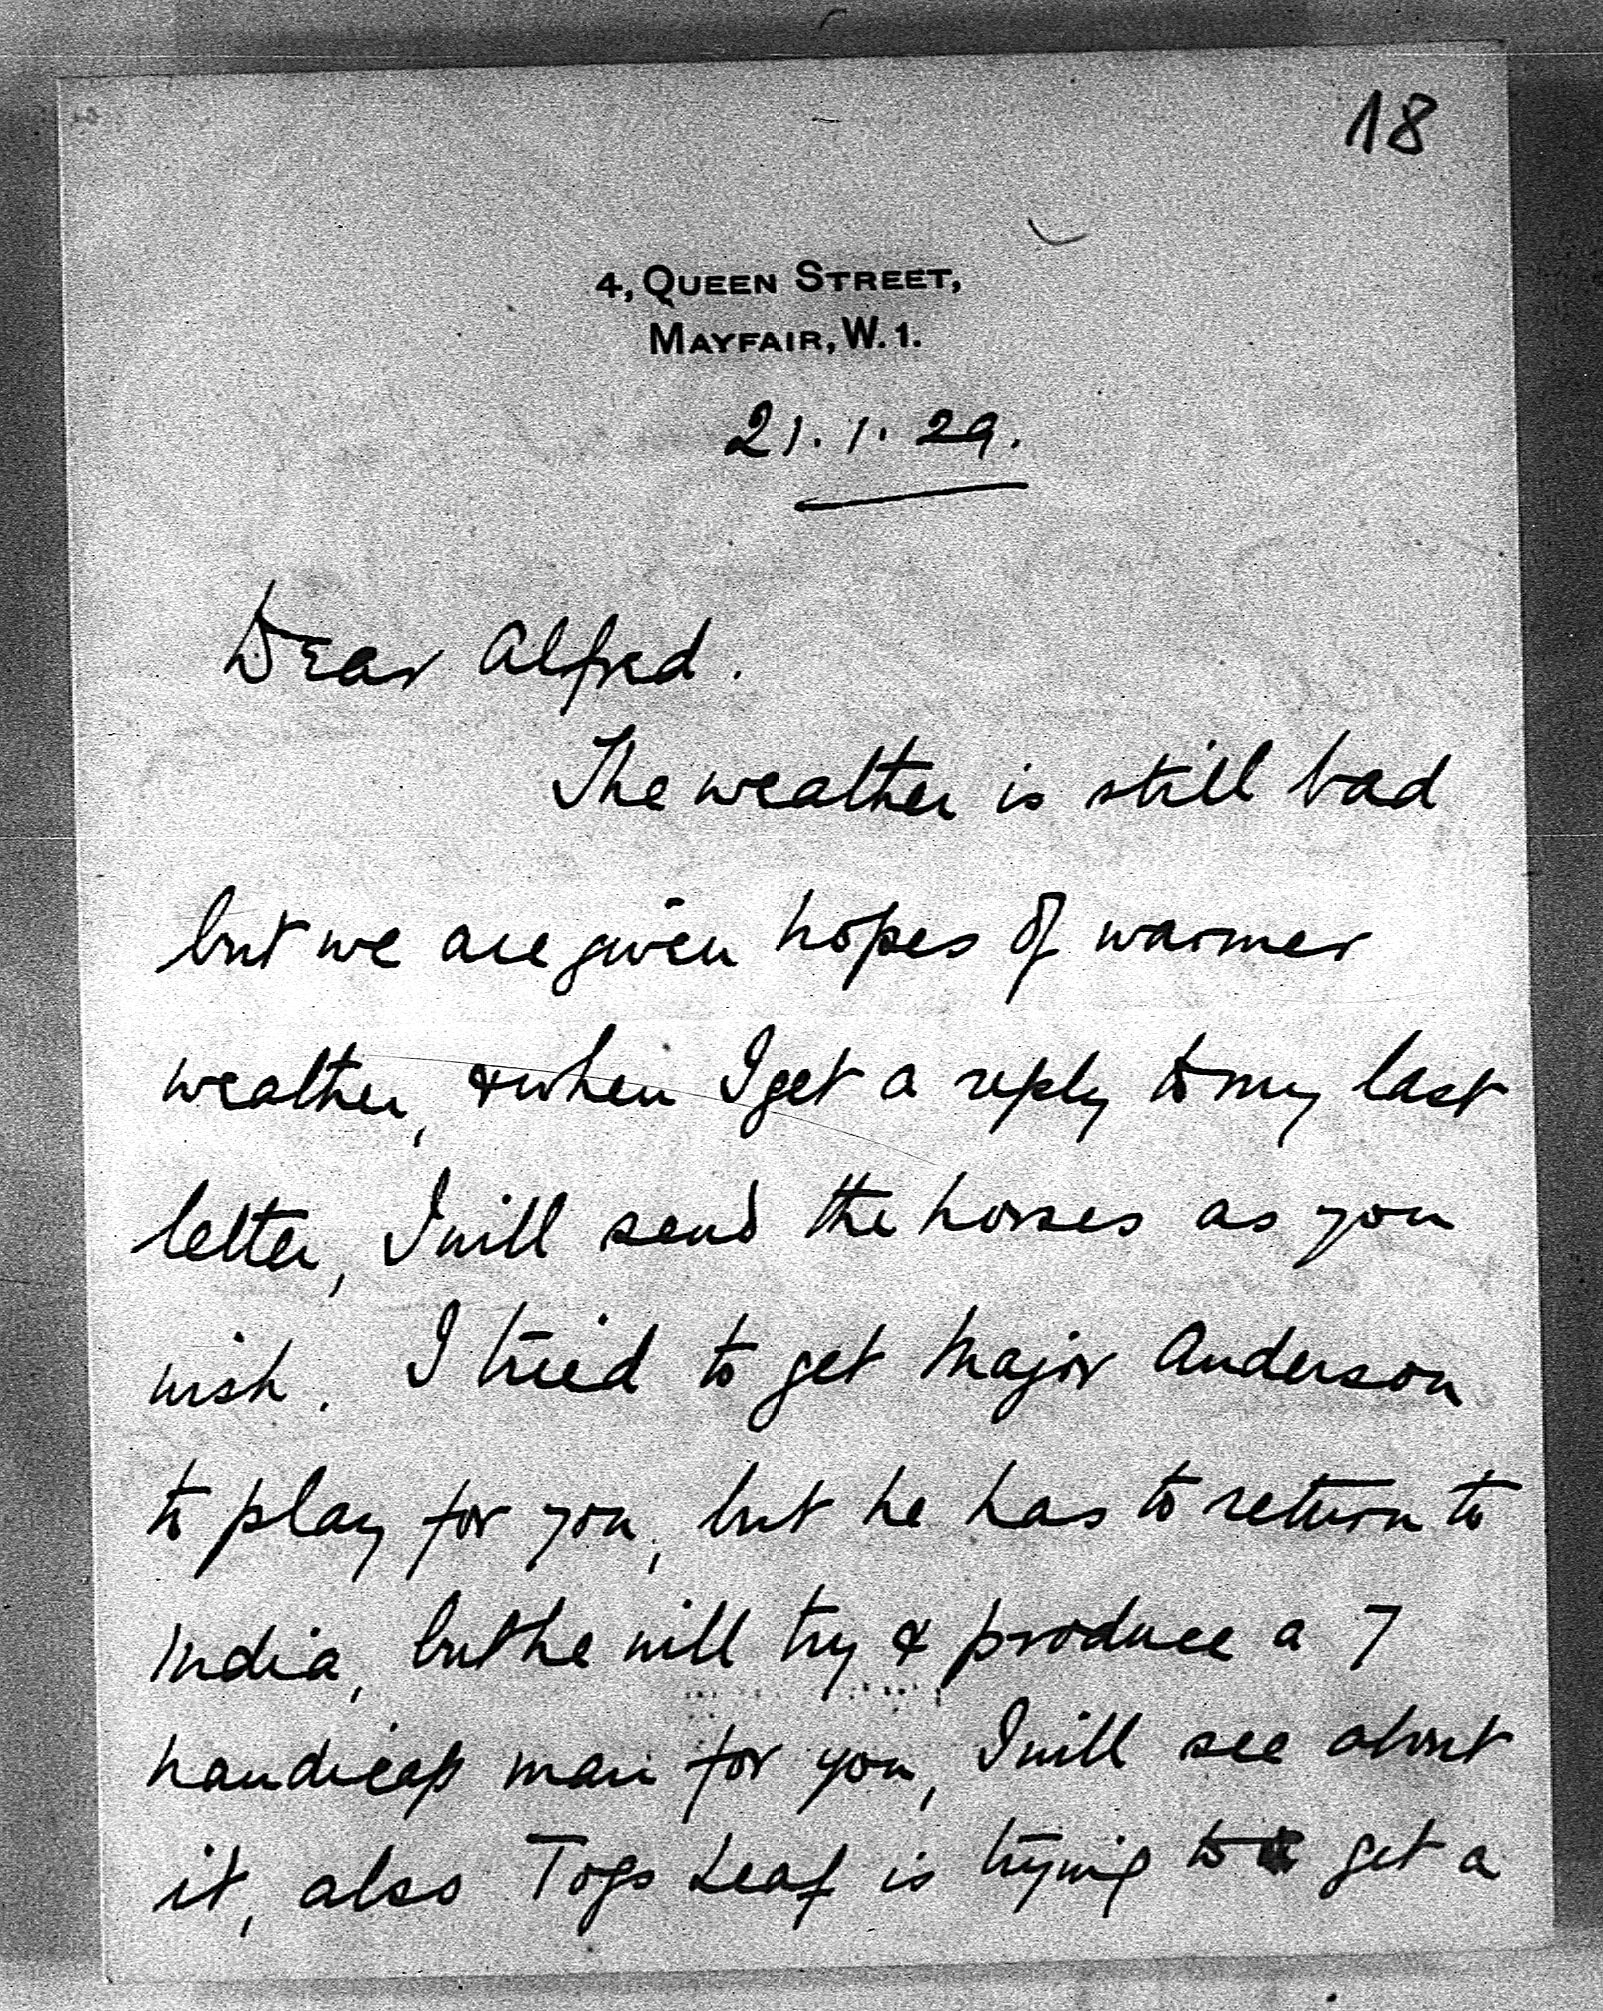 18
4, QUEEN STREET,
MAYFAIR, W. 1.
21. 1. 29.
Dear Alfred.
The weather is still bad
but we are given hopes of warmer
weather, & when I get a reply to my last
letter, I will send the horses as you
wish. I tried to get Major Anderson
to play for you, but he has to return to
India, but he will try & produce a 7
handicap man for you, I will see about
it, also Togs Leaf is trying to get a